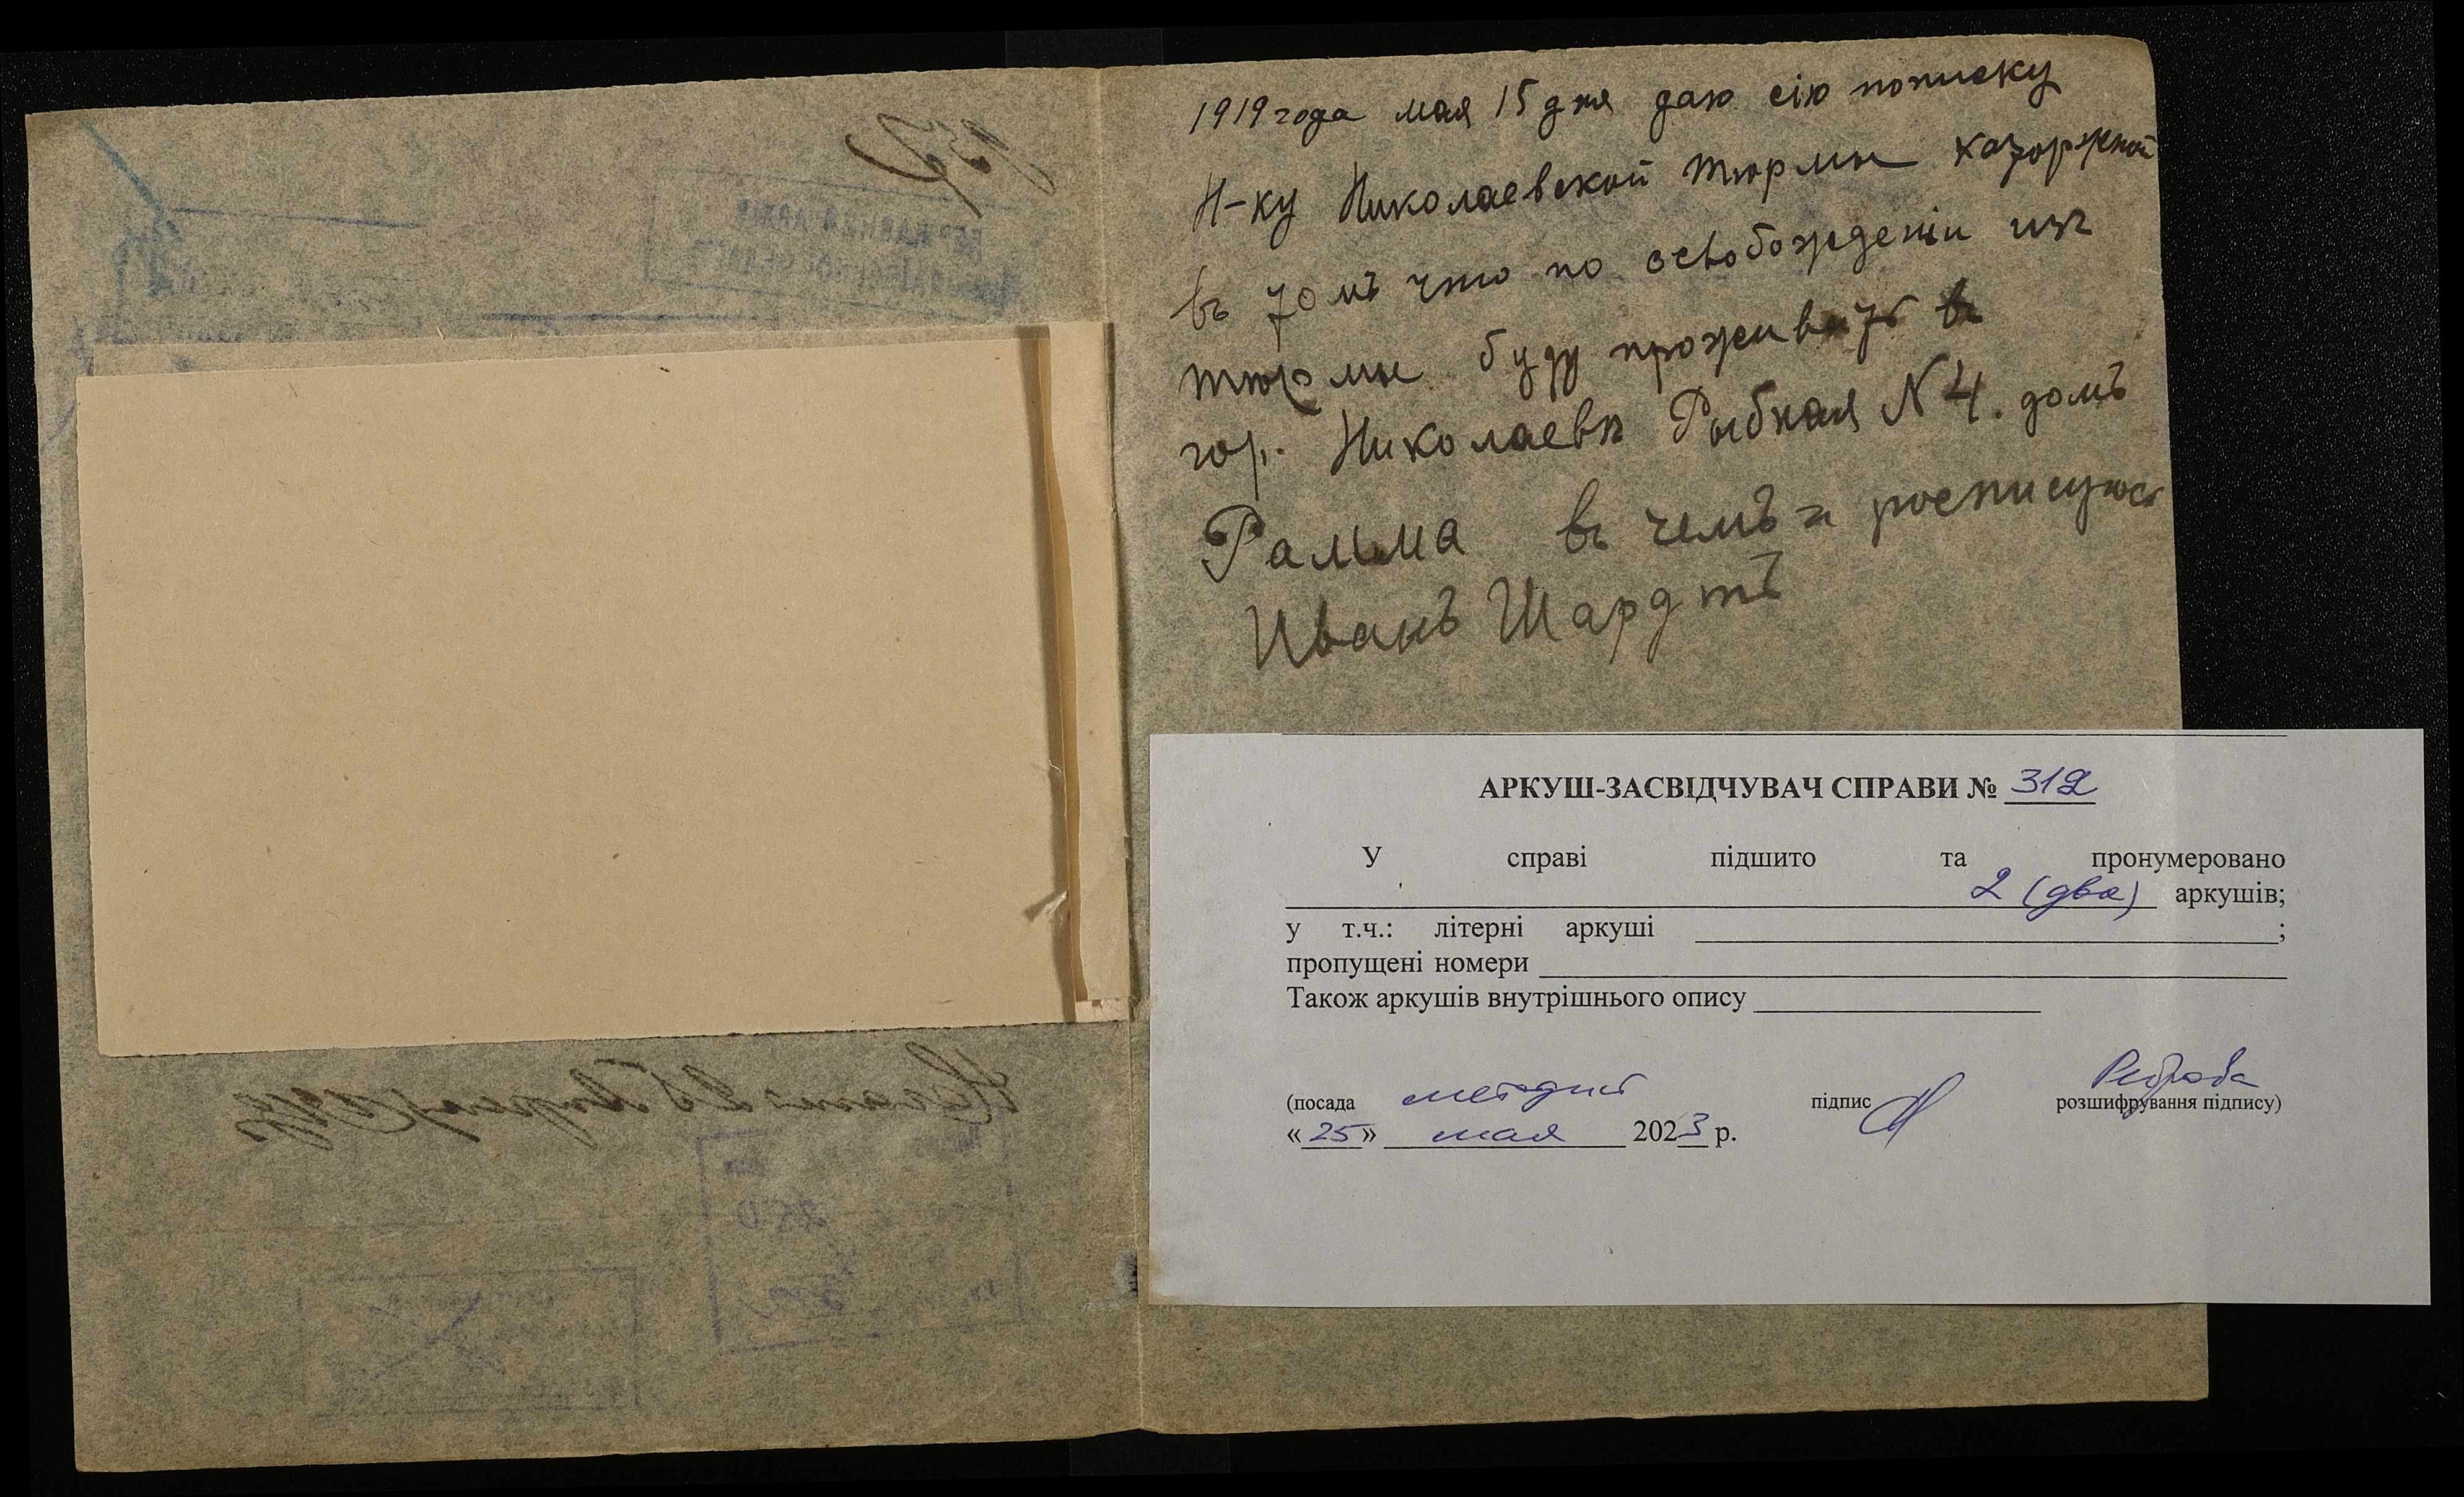 1919 года мая 15 дня даю сію пописку
Н-ку Николаевской тюрмы каторжной
въ томъ что по освобожденіи изъ
тюрмы буду проживать в
гор. Николаевъ Рыбная N 4. домъ
Рамма въ чемъ и росписуюсь
Иванъ Шардтъ
АРКУШ-ЗАСВІДЧУВАЧ СПРАВИ № 312
У справі підшито та пронумеровано
2 (два) аркушів;
у т.ч.: літерні аркуші ;
пропущені номери
Також аркушів внутрішнього опису
(посада методист підпис Реброва розшифрування підпису)
« 25 » мая 2023 р.